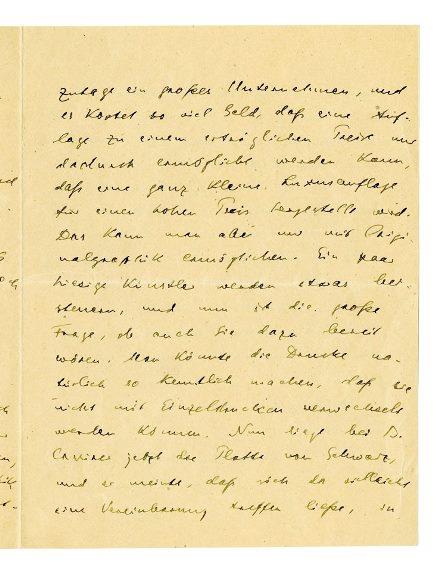 zutage ein großes Unternehmen, und
es kostet so viel Geld, daß eine Auf-
lage zu einem erträglichen Preis nur
dadurch ermöglicht werden kann,
daß eine ganz kleine Luxusauflage
für einen hohen Preis hergestellt wird.
Das kann man aber nur mit Origi-
nalgraphik ermöglichen. Ein paar
hiesige Künstler werden etwas bei-
steuern, und nun ist die große
Frage, ob auch Sie dazu bereit
wären. Man könnte die Drucke na-
türlich so kenntlich machen, daß sie
nicht mit Einzeldrucken verwechselt
werden können. Nun liegt bei B.
Cassirer jetzt die Platte von Schwarz,
und er meinte, daß sich da vielleicht
eine Vereinbarung treffen ließe, in